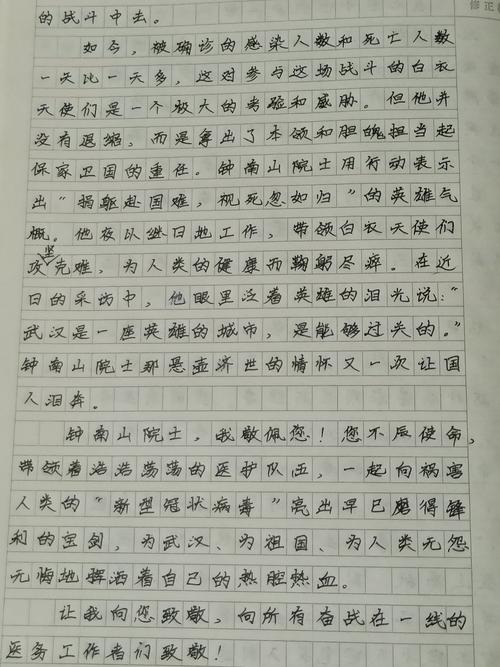 修正
的战斗中去。
如今，被确诊的感染人数和死亡人数
一天比一天多，这对参与这场战斗的白衣
天使们是一个极大的考验和威胁。但他并
没有退缩，而是拿出了本领和胆魄担当起
保家卫国的重任。钟南山院士用行动表示
出“捐躯赴国难，视死忽如归”的英雄气
概。他夜以继日地工作，带领白衣天使们
攻坚克难，为人类的健康而鞠躬尽瘁。在近
日的采访中，他眼里泛着英雄的泪光说：“
武汉是一座英雄的城市，是能够过关的。”
钟南山院士那悬壶济世的情怀又一次让国
人泪奔。
钟南山院士，我敬佩您！您不辰使命，
带领着浩浩荡荡的医护队伍，一起向祸害
人类的“新型冠状病毒”亮出早已磨得锋
利的宝剑，为武汉、为祖国、为人类无怨
无悔地挥洒着自己的热腔热血。
让我向您致敬，向所有奋战在一线的
医务工作者们致敬！